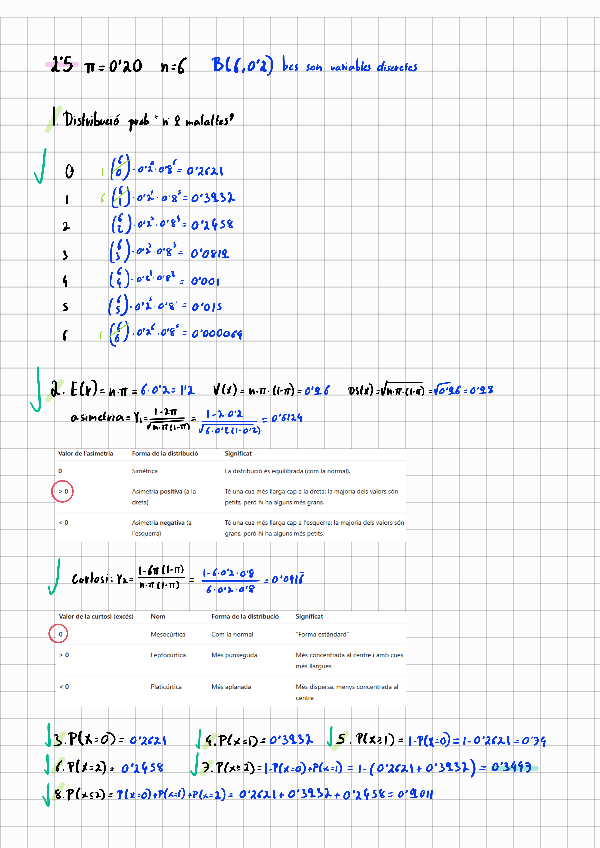 2'5 π=0'20 n=6 B(6,0'2) bcs son variables discretes
1. Distribució prob "nº malaltes"
0 1 (6 0)·0'2⁰·0'8⁶=0'2621
1 6 (6 1)·0'2¹·0'8⁵=0'3932
2 (6 2)·0'2²·0'8⁴=0'2458
3 (6 3)·0'2³·0'8³=0'0819
4 =0'001
5 =0'015
6 1 =0'000064
2. E(x)=n·π=6·0'2=1'2 V(x)=n·π·(1-π)=0'96 DS(x)=√n·π·(1-π)=√0'96=0'98
asimetria=γ₁=1-2π/√n·π(1-π)=1-2·0'2/√6·0'2(1-0'2)=0'6124
Valor de l'asimetria Forma de la distribució Significat
0 Simètrica La distribució és equilibrada (com la normal).
> 0 Asimetria positiva (a la dreta) Té una cua més llarga cap a la dreta: la majoria dels valors són petits, però hi ha alguns més grans.
< 0 Asimetria negativa (a l'esquerra) Té una cua més llarga cap a l'esquerra: la majoria dels valors són grans, però hi ha alguns més petits.
Curtosi: γ₂=1-6π(1-π)/n·π(1-π)=1-6·0'2·0'8/6·0'2·0'8=0'0416
Valor de la curtosi (excés) Nom Forma de la distribució Significat
0 Mesocúrtica Com la normal "Forma estàndard"
> 0 Leptocúrtica Més punxeguda Més concentrada al centre i amb cues més llargues
< 0 Platicúrtica Més aplanada Més dispersa, menys concentrada al centre
3. P(x=0)=0'2621 4. P(x=1)=0'3932 5. P(x≥1)=1-P(x=0)=1-0'2621=0'74
6. P(x=2)=0'2458 7. =1-P(x=0)+P(x=1)=1-(0'2621+0'3932)=0'3447
8. P(x≤2)=P(x=0)+P(x=1)+P(x=2)=0'2621+0'3932+0'2458=0'9011